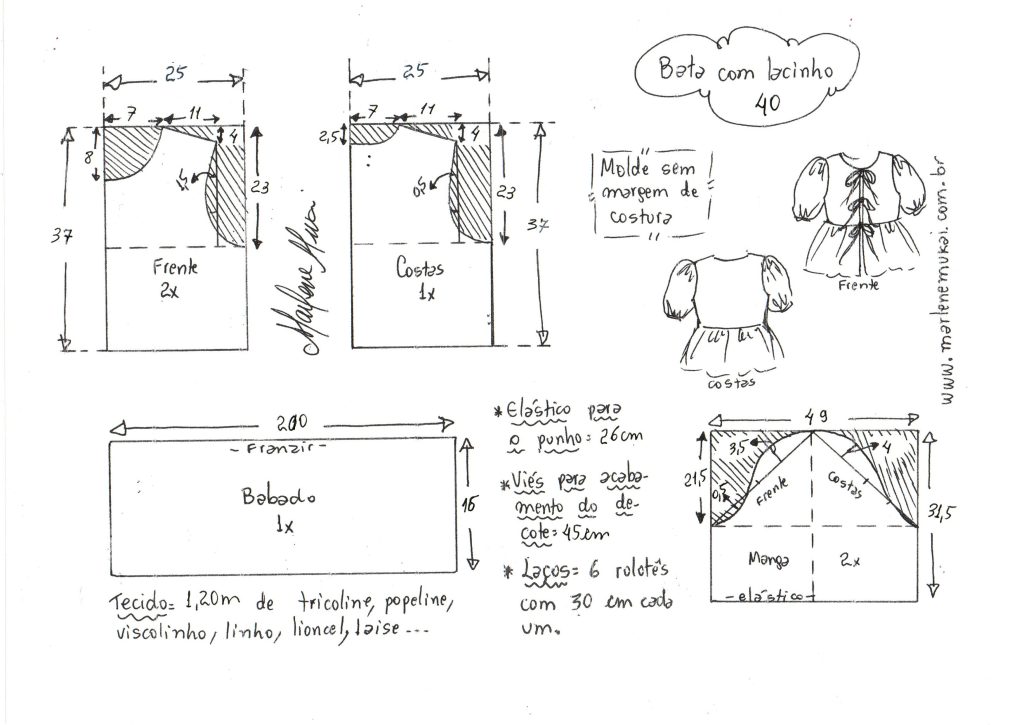 Bata com lacinho
40
25
7
11
8
4
4
23
37
Frente
2x
Marlene Mukai
25
7
11
2,5
4
23
37
Costas
1x
Molde sem
margem de
costura
Frente
costas
www.marlenemukai.com.br
200
- Franzir -
Babado
1x
16
Tecido= 1,20m de tricoline, popeline,
viscolinho, linho, lioncel, laise...
* Elástico para
o punho= 26cm
* Viés para acaba-
mento do de-
cote= 45cm
* Laços= 6 rolotês
com 30 cm cada
um.
49
3,5
4
21,5
0,5
Frente
Costas
31,5
Manga 2x
- elástico -